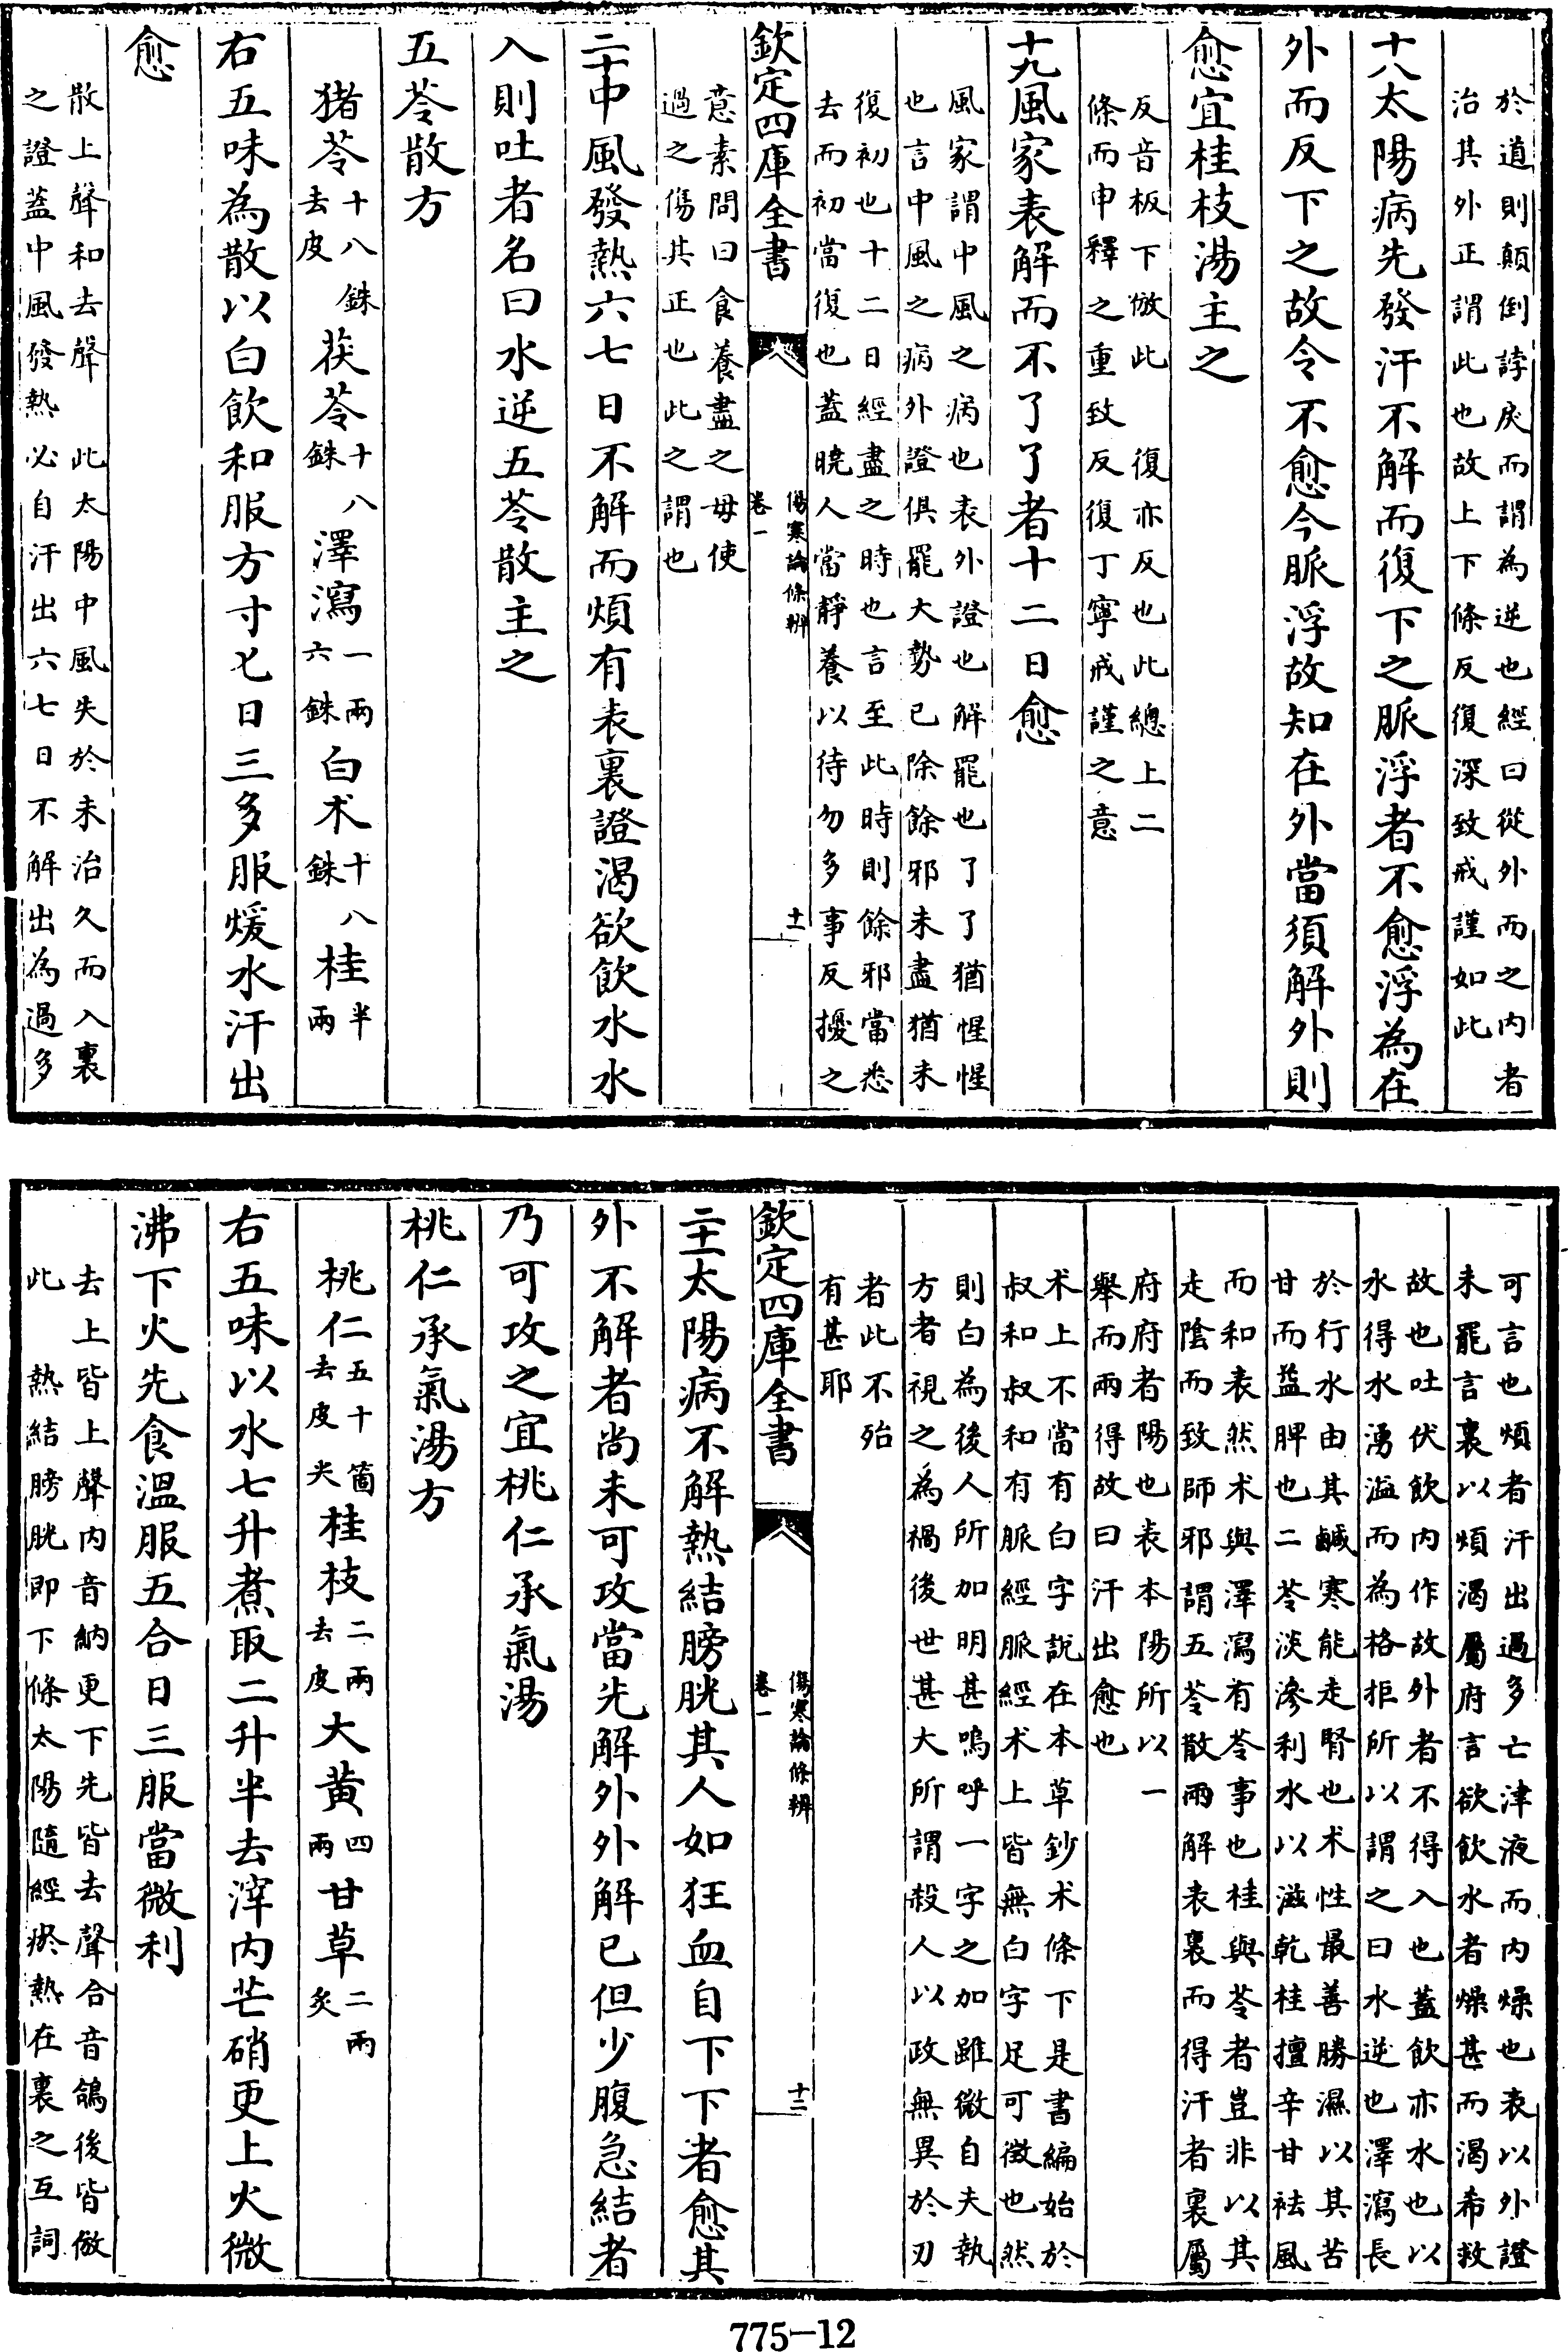 於道則顛倒誖戾而謂為逆也經曰從外而之内者
治其外正謂此也故上下條反復深致戒謹如此
十八太陽病先發汗不解而復下之脈浮者不愈浮為在
外而反下之故令不愈今脈浮故知在外當須解外則
愈宜桂枝湯主之
反音板下倣此　復亦反也此總上二
條而申釋之重致反復丁寧戒謹之意
十九風家表解而不了了者十二日愈
風家謂中風之病也表外證也解罷也了了猶惺惺
也言中風之病外證俱罷大勢已除餘邪未盡猶未
復初也十二日經盡之時也言至此時則餘邪當悉
去而初當復也蓋曉人當靜養以待勿多事反擾之
欽定四庫全書
傷寒論條辨
卷一
十一
意素問曰食養盡之毋使
過之傷其正也此之謂也
二十中風發熱六七日不解而煩有表裏證渴欲飲水水
入則吐者名曰水逆五苓散主之
五苓散方
猪苓十八銖去皮　茯苓十八銖　澤瀉一兩六銖　白术十八銖　桂半兩
右五味為散以白飲和服方寸匕日三多服煖水汗出
愈
散上聲和去聲　此太陽中風失於未治久而入裏
之證蓋中風發熱必自汗出六七日不解出為過多
可言也煩者汗出過多亡津液而内燥也表以外證
未罷言裏以煩渴屬府言欲飲水者燥甚而渴希救
故也吐伏飲内作故外者不得入也蓋飲亦水也以
水得水湧溢而為格拒所以謂之曰水逆也澤瀉長
於行水由其鹹寒能走腎也术性最善勝濕以其苦
甘而益脾也二苓淡滲利水以滋乾桂擅辛甘袪風
而和表然术與澤瀉有苓事也桂與苓者豈非以其
走陰而致師邪謂五苓散兩解表裏而得汗者裏屬
府府者陽也表本陽所以一
舉而兩得故曰汗出愈也
术上不當有白字說在本草鈔术條下是書編始於
叔和叔和有脈經脈經术上皆無白字足可徵也然
則白為後人所加明甚嗚呼一字之加雖微自夫執
方者視之為禍後世甚大所謂殺人以政無異於刃
者此不殆
有甚耶
欽定四庫全書
傷寒論條辨
卷一
十二
二十一太陽病不解熱結膀胱其人如狂血自下下者愈其
外不解者尚未可攻當先解外外解已但少腹急結者
乃可攻之宜桃仁承氣湯
桃仁承氣湯方
桃仁五十箇去皮尖　桂枝二兩去皮　大黄四兩　甘草二兩炙
右五味以水七升煮取二升半去滓内芒硝更上火微
沸下火先食温服五合日三服當微利
去上皆上聲内音納更下先皆去聲合音鴿後皆倣
此　熱結膀胱即下條太陽隨經瘀熱在裏之互詞
775-12